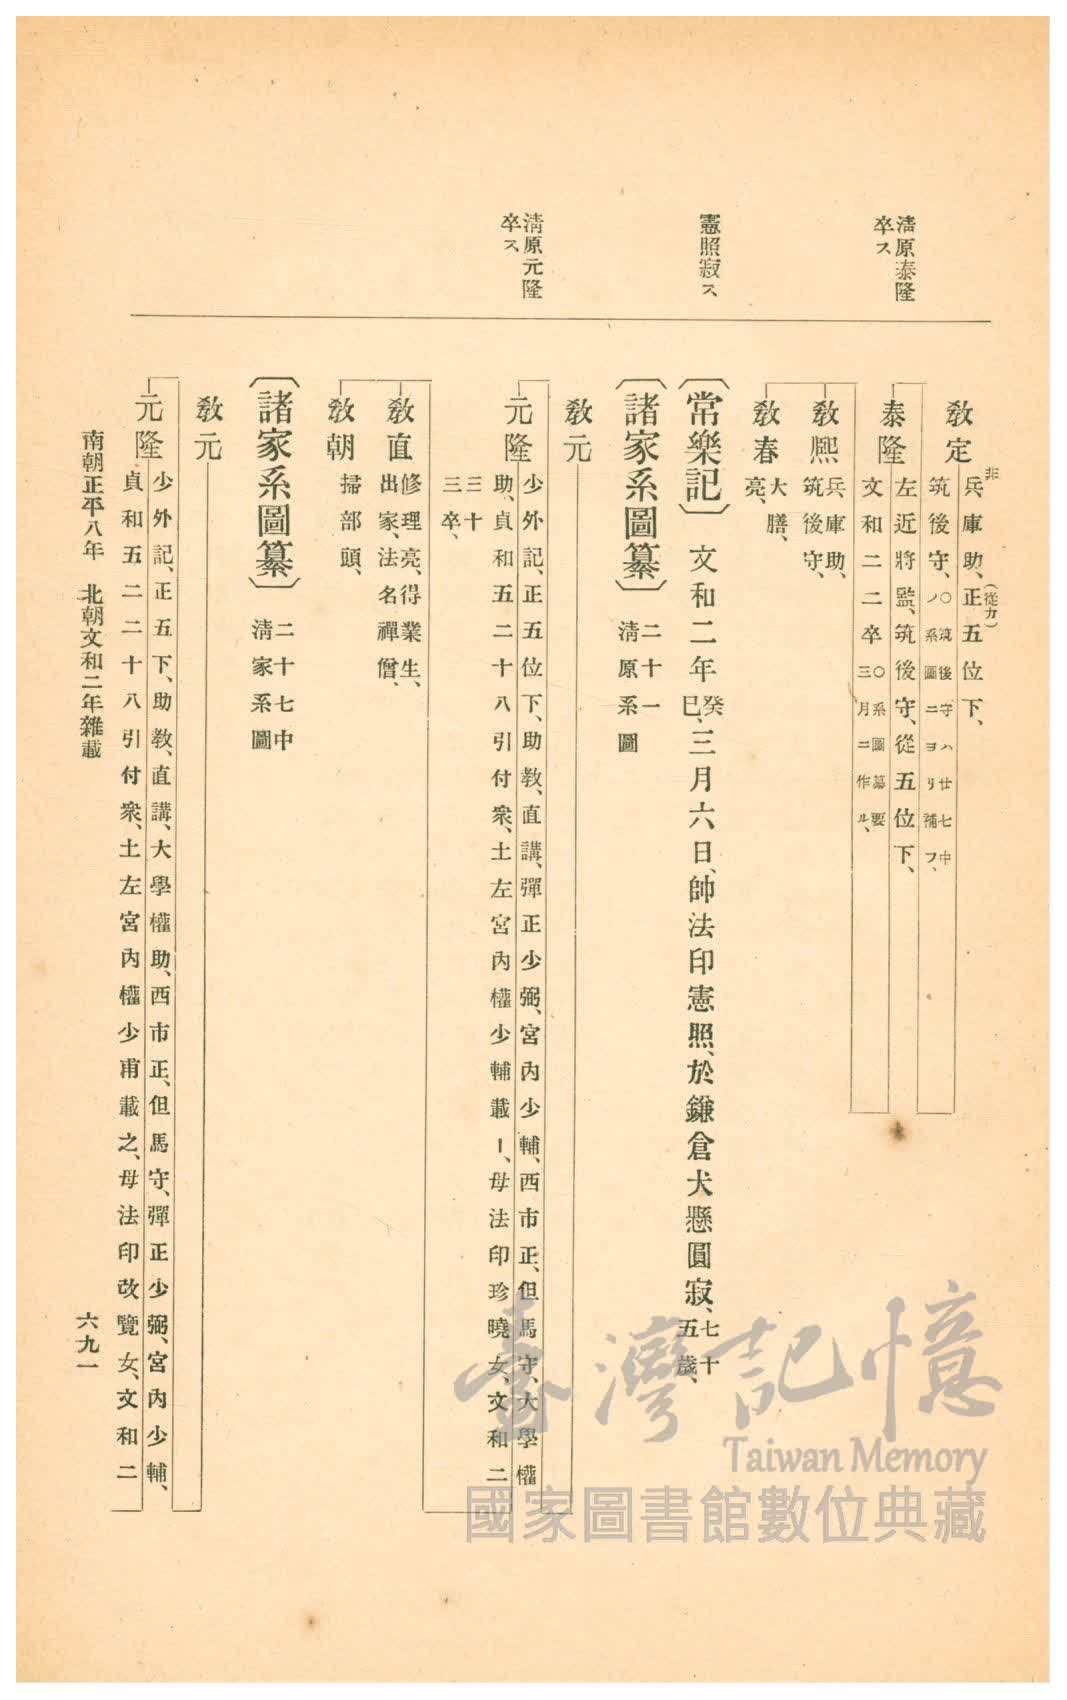 清原泰隆
卒ス、
憲照寂ス、
清原元隆
卒ス、
敎定
非
兵庫助、正五位下、
(從カ)
筑後守、〇筑後守ハ廿七中
ノ系圖ニヨリ補フ、
泰隆
左近將監、筑後守、從五位下、
文和二二卒〇系圖纂要
三月ニ作ル、
敎熈
兵庫助、
筑後守、
敎春
大膳、
亮、
〔常樂記〕文和二年癸巳、三月六日、帥法印憲照、於鎌倉犬懸圓寂、七十五歲、
〔諸家系圖纂〕二十一
清原系圖
敎元
元隆
少外記、正五位下、助敎、直講、彈正少弼、宮內少輔、西市正、但馬守、大學權
助、貞和五二十八引付衆、土左宮內權少輔藏ー、母法印珍曉女、文和二
三十
三卒、
敎直
修理亮、得業生、
出家、法名禪僧、
敎朝
掃部頭、
〔諸家系圖纂〕二十七中
清家系圖
敎元
元隆
少外記、正五下、助敎、直講、大學權助、西市正、但馬守、彈正少弼、宮內少輔、
貞和五二二十八引付衆、土左宮內權少甫藏之、母法印改覽女、文和二
南朝正平八年 北朝文和二年雜載
六九一
臺灣記憶
Taiwan Memory
國家圖書館數位典藏